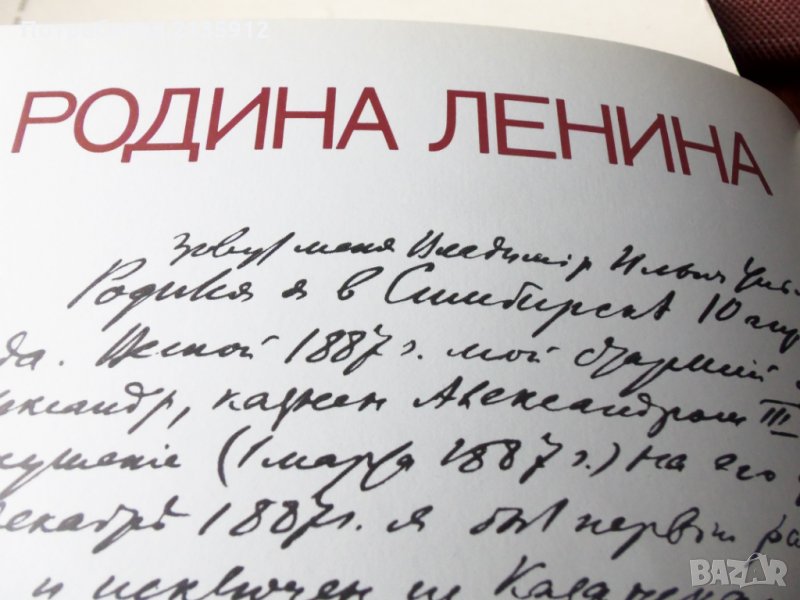 РОДИНА ЛЕНИНА
Зовут меня Владимир Ильич
Родился я в Симбирске 10
да. Весной 1887 г. мой старший
ександр, казнен Александром III
кушение (1 марта 1887 г.) на его
декабре 1887 г. я был первый
и исключен из
BAZAR
.bg